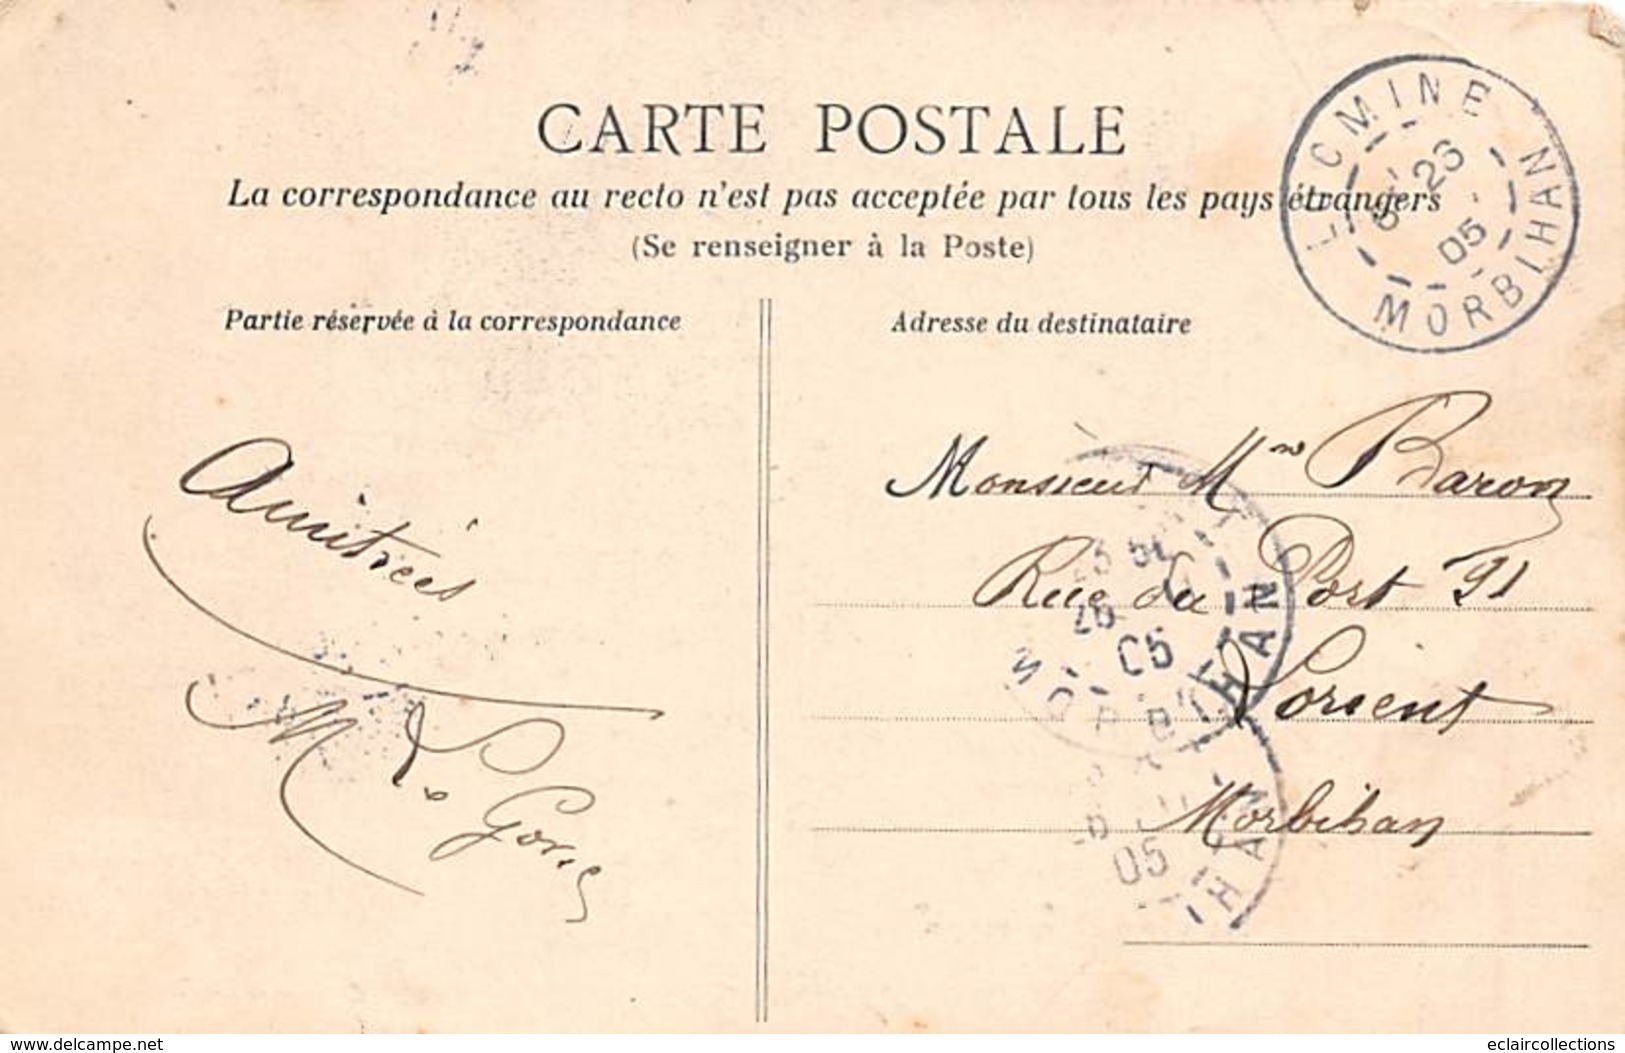 CARTE POSTALE
La correspondance au recto n'est pas acceptée par tous les pays étrangers
(Se renseigner à la Poste)
LOCMINE
26
05
MORBIHAN
Partie réservée à la correspondance
Adresse du destinataire
Monsieur Baron
Rue du Port 91
Lorient
Morbihan
05
05
delcampe.net
eclaircollections